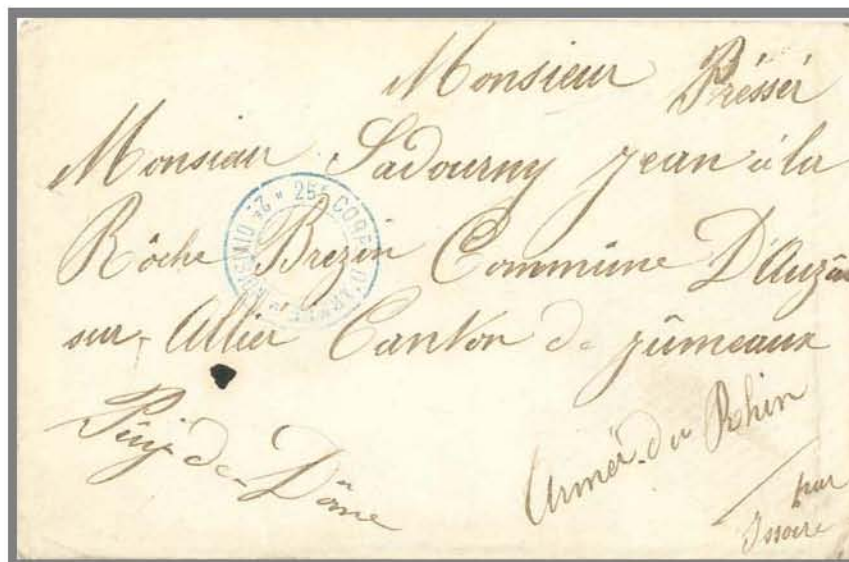 Monsieur Préssér
Monsieur Sadourny Jean à la
Rôche Brezin Commûne D'Auzât
sur Allier Canton de Jûmeaux
Pûy-de-Dôme
Armér du Rhin
par
Issoire
2E DIVISION * 25E CORPS D'ARMEE *